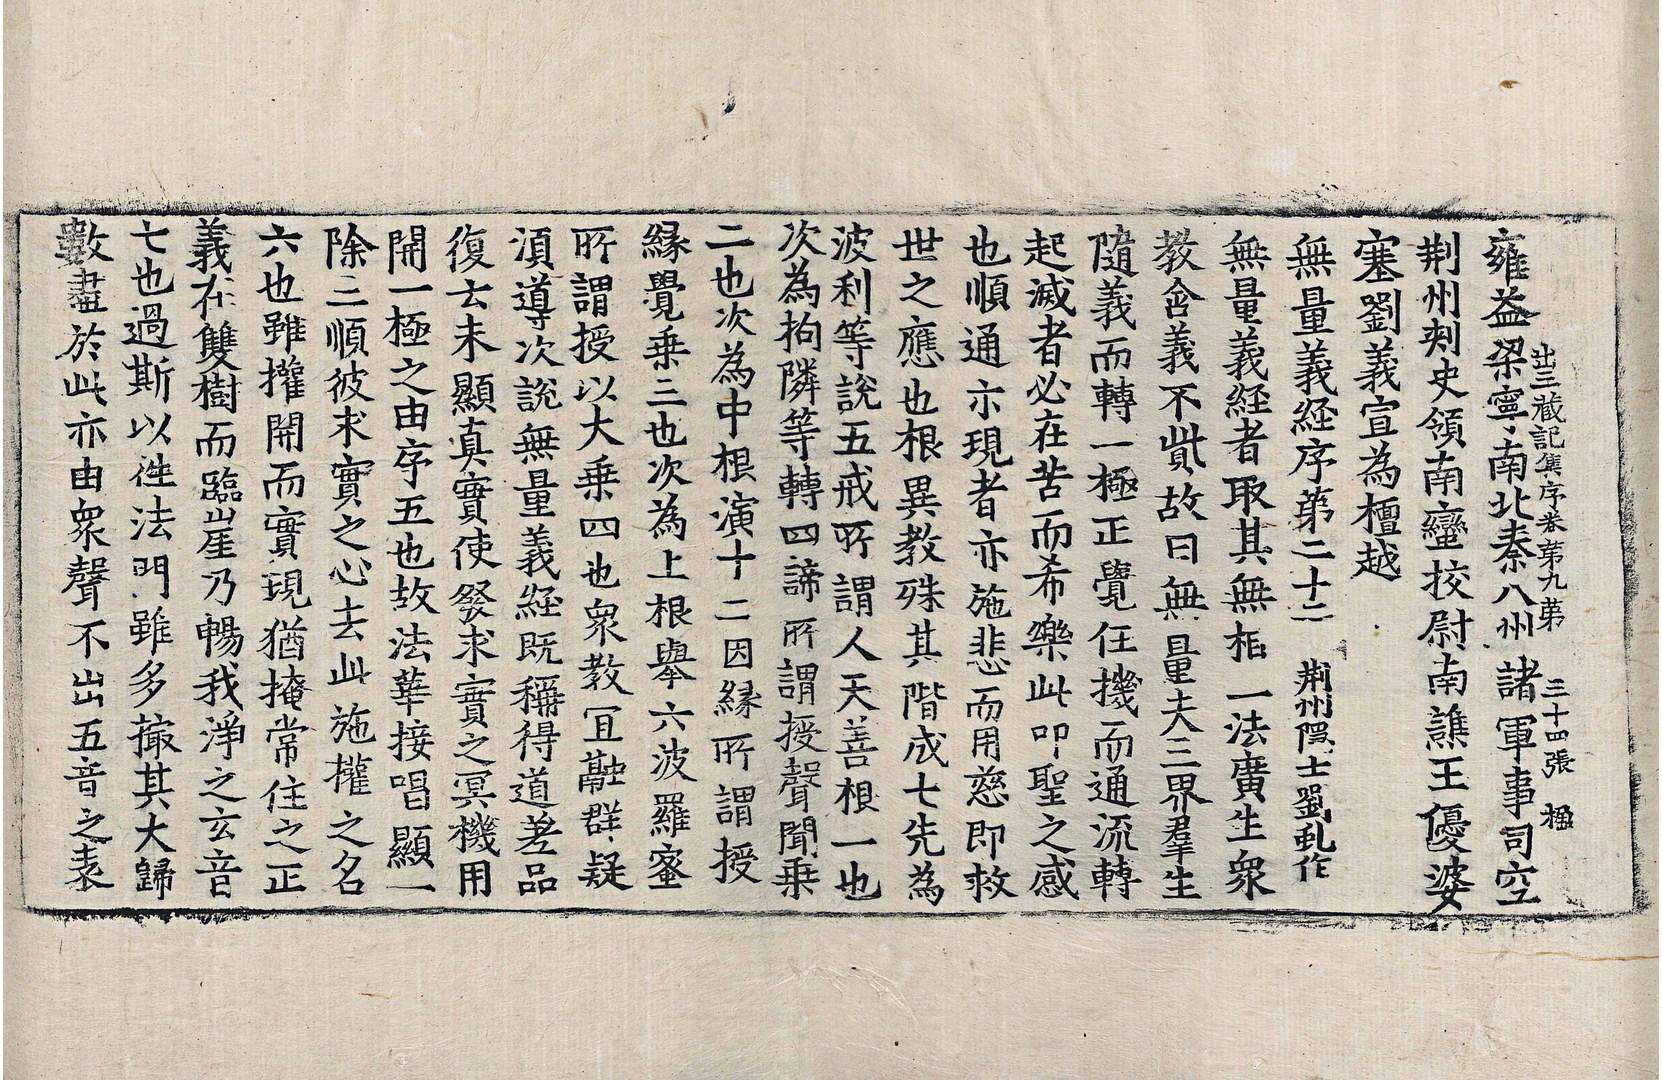 出三藏記集序卷第九第 三十四張 楹
雍益梁寧南北秦八州諸軍事司空
荆州刾史領南蠻挍尉南譙王優婆
塞劉義宣為檀越
無量義經序第二十二 荆州隠士劉虬作
無量義経者取其無相一法廣生衆
教含義不貲故曰無量夫三界羣生
隨義而轉一極正覺任機而通流轉
起滅者必在苦而希樂此叩聖之感
也順通示現者亦施悲而用慈即救
世之應也根異教殊其階成七先為
波利等說五戒所謂人天善根一也
次為拘隣等轉四諦所謂授聲聞乗
二也次為中根演十二因縁所謂授
縁覺乗三也次為上根舉六波羅蜜
所謂授以大乗四也衆教冝融群疑
湏導次說無量義経既稱得道差品
復去未顯真實使發求實之冥機用
開一極之由序五也故法華接唱顯一
除三順彼求實之心去此施權之名
六也雖權開而實現猶掩常住之正
義在雙樹而臨崖乃暢我淨之玄音
七也過斯以徃法門雖多撮其大歸
數盡於此亦由衆聲不出五音之表